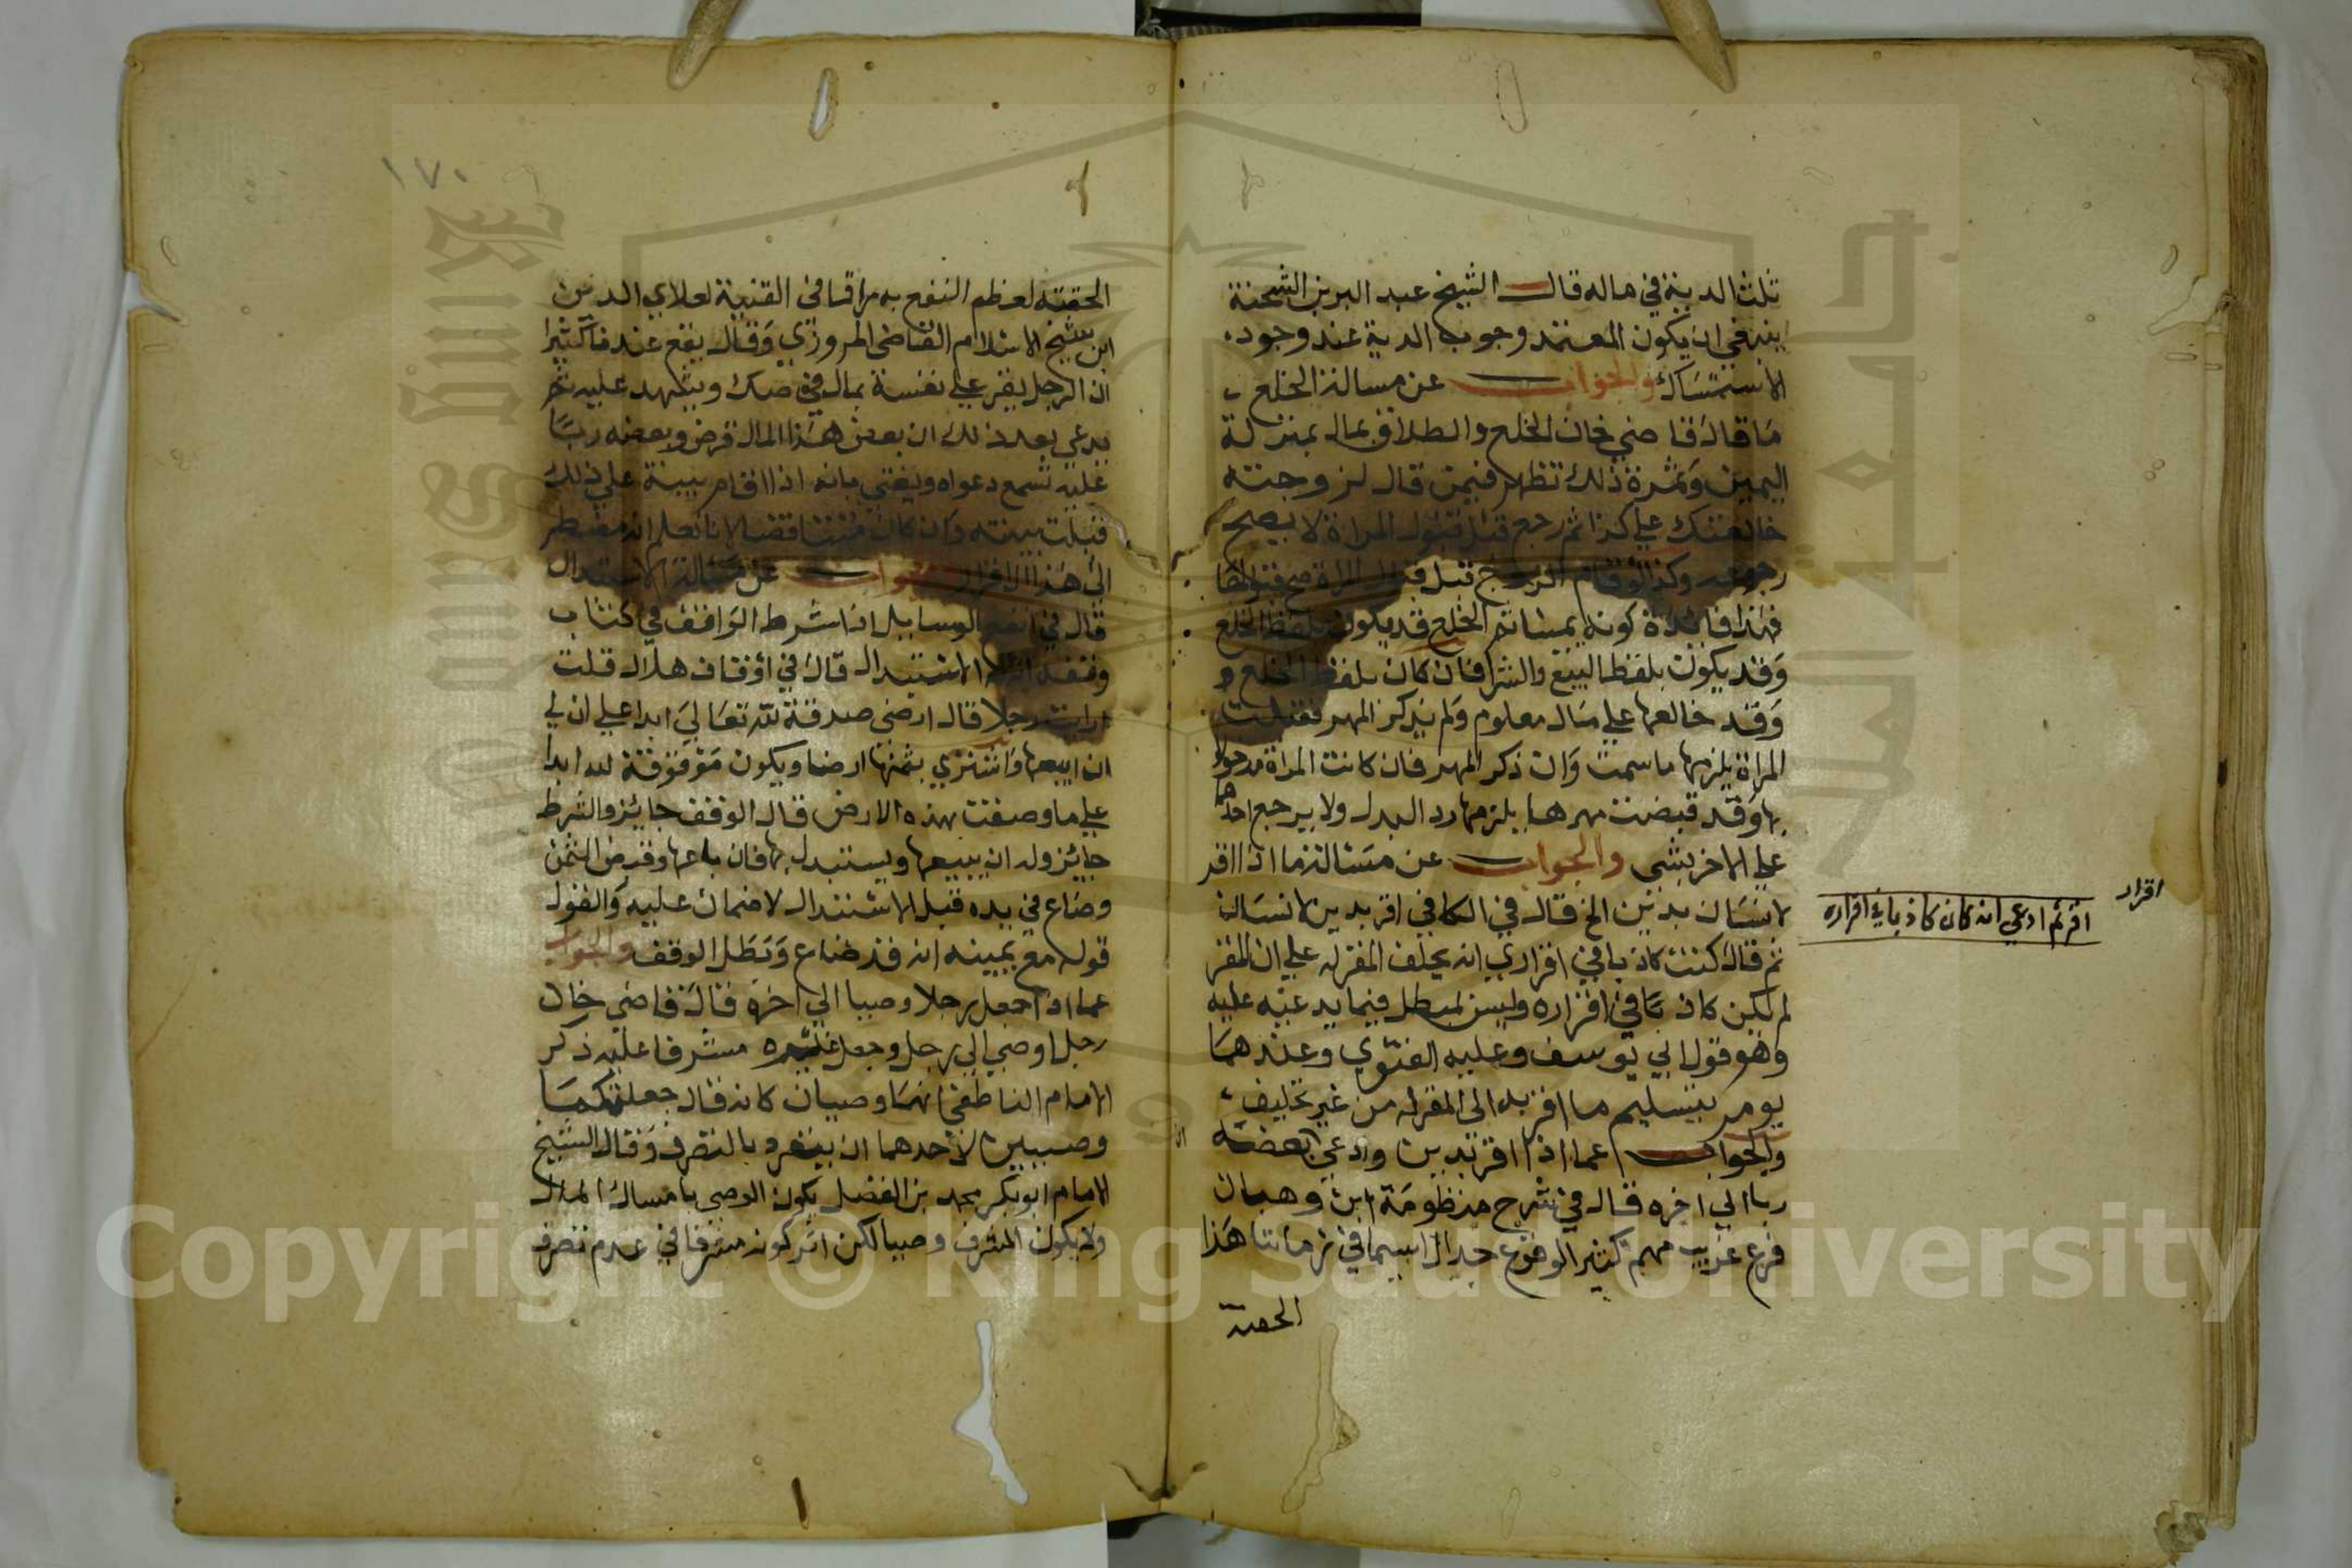 ثلث الدية في ماله قال الشيخ عبد البر بن الشحنة
ينبغي ان يكون المعتمد وجوب الدية عند وجود
الاستمساك والجواب عن مسالة الخلع
ما قال قاضي خان الخلع والطلاق بمال بمنزلة
اليمين وثمرة ذلك تظهر فيمن قال لزوجته
خالعتك علي كذا ثم رجع قبل قبول المراة لا يصح
رجوعه وكذا لو قام الزوج قبل قبول المراة صح قبولها
فهذا فائدة كونه يمينا ثم الخلع قد يكون بلفظ الخلع
وقد يكون بلفظ البيع والشرا فان كان بلفظ الخلع و
وقد خالعها علي مال معلوم ولم يذكر المهر فقبلت
المراة يلزمها ما سمت وان ذكر المهر فان كانت المراة مدخولا
بها وقد قبضت مهرها يلزمها رد البدل ولا يرجع احدهما
علي الاخر بشي والجواب عن مسالة ما اذا اقر
لانسان بدين الخ قال في الكافي اقر بدين لانسان
ثم قال كنت كاذبا في اقراري انه يحلف المقر له علي ان المقر
لم يكن كاذبا في اقراره وليس بمبطل فيما يدعيه عليه
وهو قول ابي يوسف وعليه الفتوي وعندهما
يومر بتسليم ما اقر به الي المقر له من غير تحليف
والجواب عما اذا اقر بدين وادعي بعضه
ربا الي اخره قال في شرح منظومة ابن وهبان
فرع غريب مهم كثير الوقوع جدا لا سيما في زماننا هذا
الحقته
اقرار
اقر ثم ادعي انه كان كاذبا في اقراره
١٧٠
الحقته لعظم النفع به راقنا في القنية لعلاي الدين
ابن شيخ الاسلام القاضي المروزي وقال يقع عندنا كثيرا
ان الرجل يقر علي نفسه بمال في صك ويشهد عليه ثم
يدعي بعد ذلك ان بعض هذا المال قرض وبعضه ربا
عليه تسمع دعواه ويفتي بانه اذا اقام بينة علي ذلك
قبلت بينته وان كان متناقضا لانا نعلم انه مضطر
الي هذا الاقرار والجواب عن مسالة الاستبدال
قال في انفع الوسايل اذا شرط الواقف في كتاب
وقفه الاستبدال قال في اوقاف هلال قلت
ارايت رجلا قال ارضي صدقة لله تعالي ابدا علي ان لي
ان ابيعها واشتري بثمنها ارضا ويكون موقوفة لله ابدا
علي ما وصفت بهذه الارض قال الوقف جايز والشرط
جايز وله ان يبيعها ويستبدل بها فان باعها وقبض الثمن
وضاع في يده قبل الاستبدال لا ضمان عليه والقول
قوله مع يمينه انه قد ضاع وبطل الوقف والجواب
عما اذا جعل رجلا وصيا الي اخره قال قاضي خان
رجل اوصي الي رجل وجعل غيره مشرفا عليه ذكر
الامام الناطفي انهما وصيان كانه قال جعلتكما
وصيين لاحدهما ان ينفرد بالتصرف وقال الشيخ
الامام ابو بكر محمد بن الفضل يكون الوصي بامساك المال
ولا يكون المشرف وصيا لكن اثر كونه مشرفا في عدم تصرف